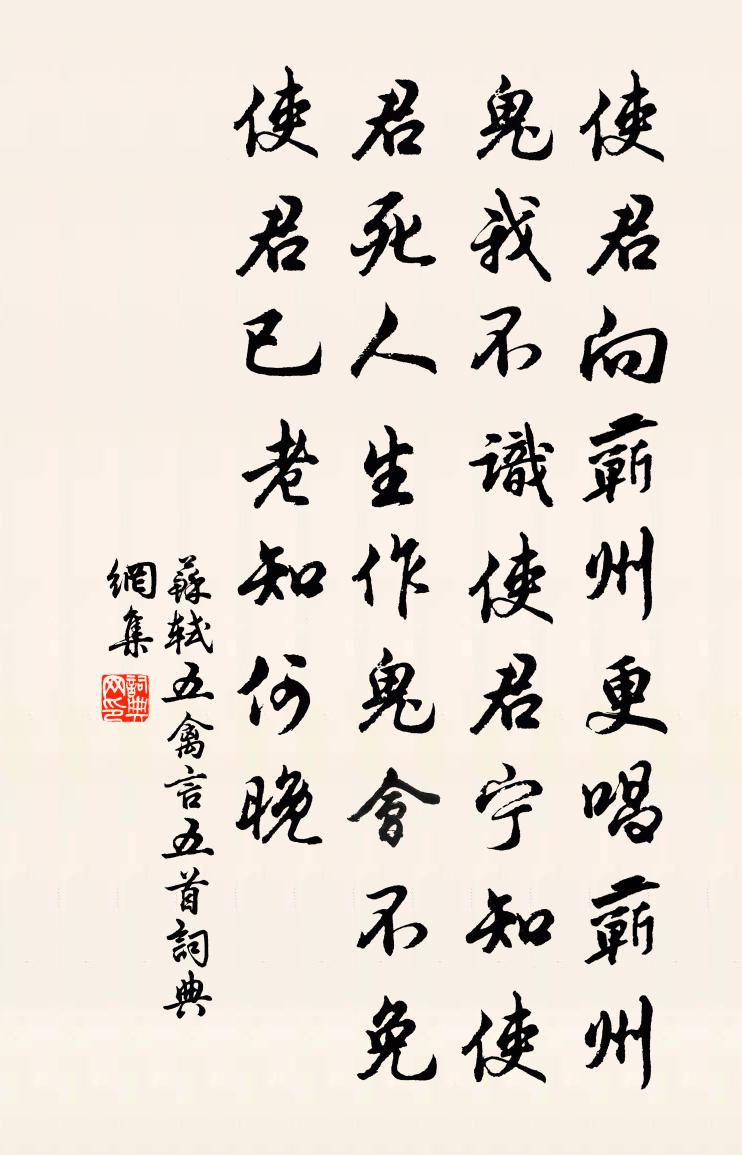 使君向蘄州更唱蘄州
鬼我不識使君宁知使
君死人生作鬼會不免
使君已老知何晚
蘇軾五禽言五首詞典
網集
詞典
网印